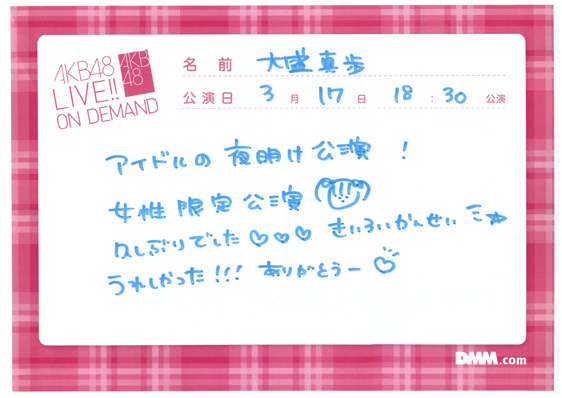 AKB48
LIVE!!
ON DEMAND
AKB
48
名前 大盛真歩
公演日 3月17日 18:30公演
アイドルの夜明け公演!
女性限定公演
久しぶりでした♡♡♡ きいろいかんせい
うれしかった!!! ありがとうー♡
DMM.com